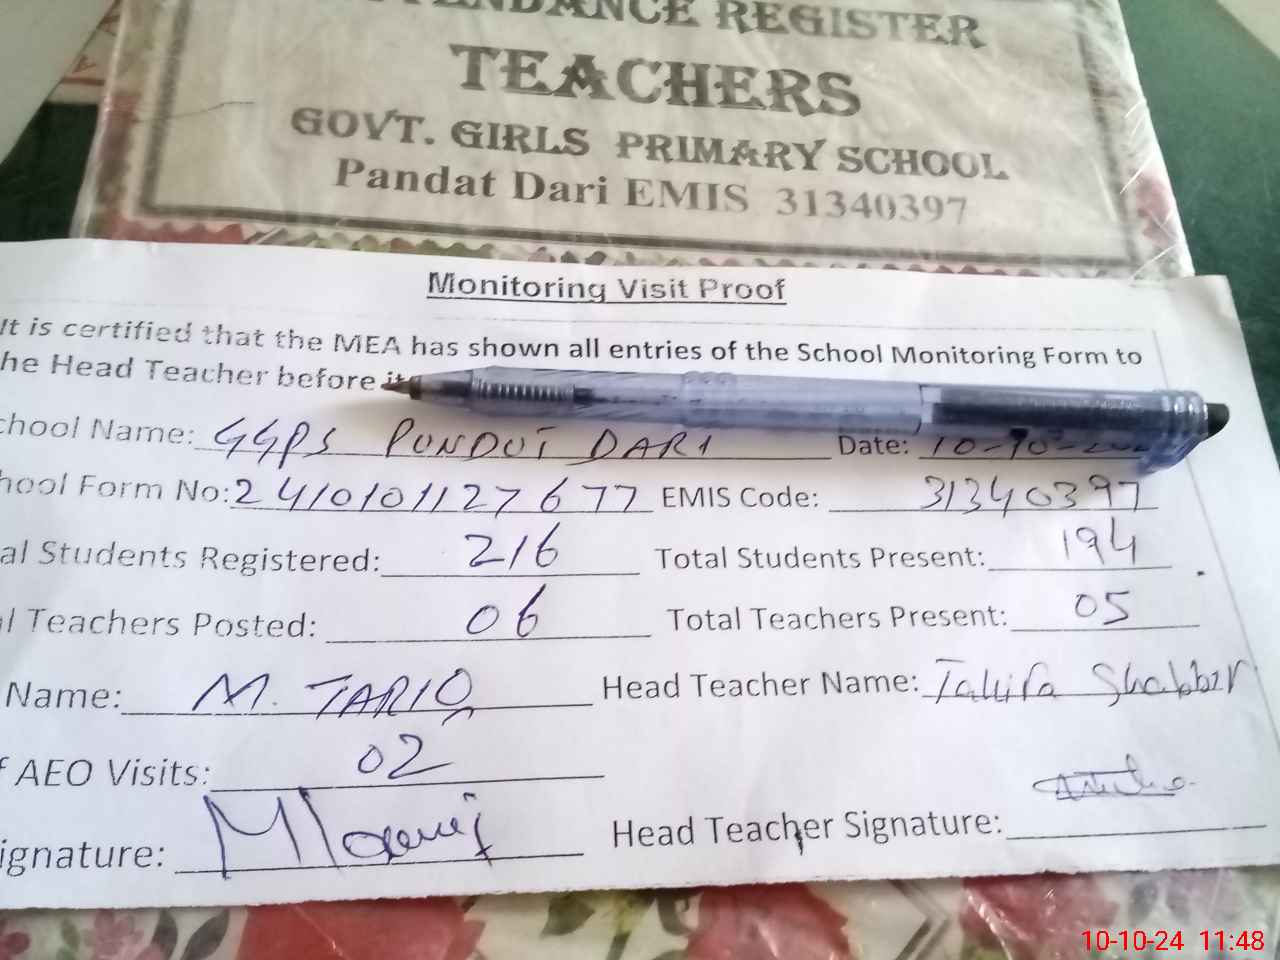 ATTENDANCE REGISTER
TEACHERS
GOVT. GIRLS PRIMARY SCHOOL
Pandat Dari EMIS 31340397
Monitoring Visit Proof
It is certified that the MEA has shown all entries of the School Monitoring Form to
he Head Teacher before
chool Name: GGPS PUNDUT DARI Date: 10-10-
hool Form No: 2410101127677 EMIS Code: 31340397
al Students Registered: 216 Total Students Present: 194
l Teachers Posted: 06 Total Teachers Present: 05
Name: M. TARIQ Head Teacher Name: Tahira Shabbir
f AEO Visits: 02
ignature: Head Teacher Signature:
10-10-24 11:48